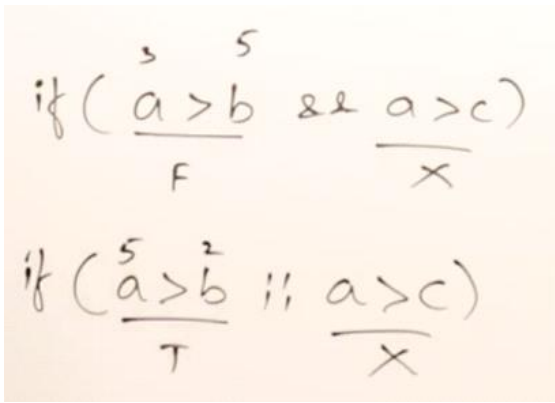 3 5
if ( a > b && a > c )
F X
5 2
if ( a > b || a > c )
T X